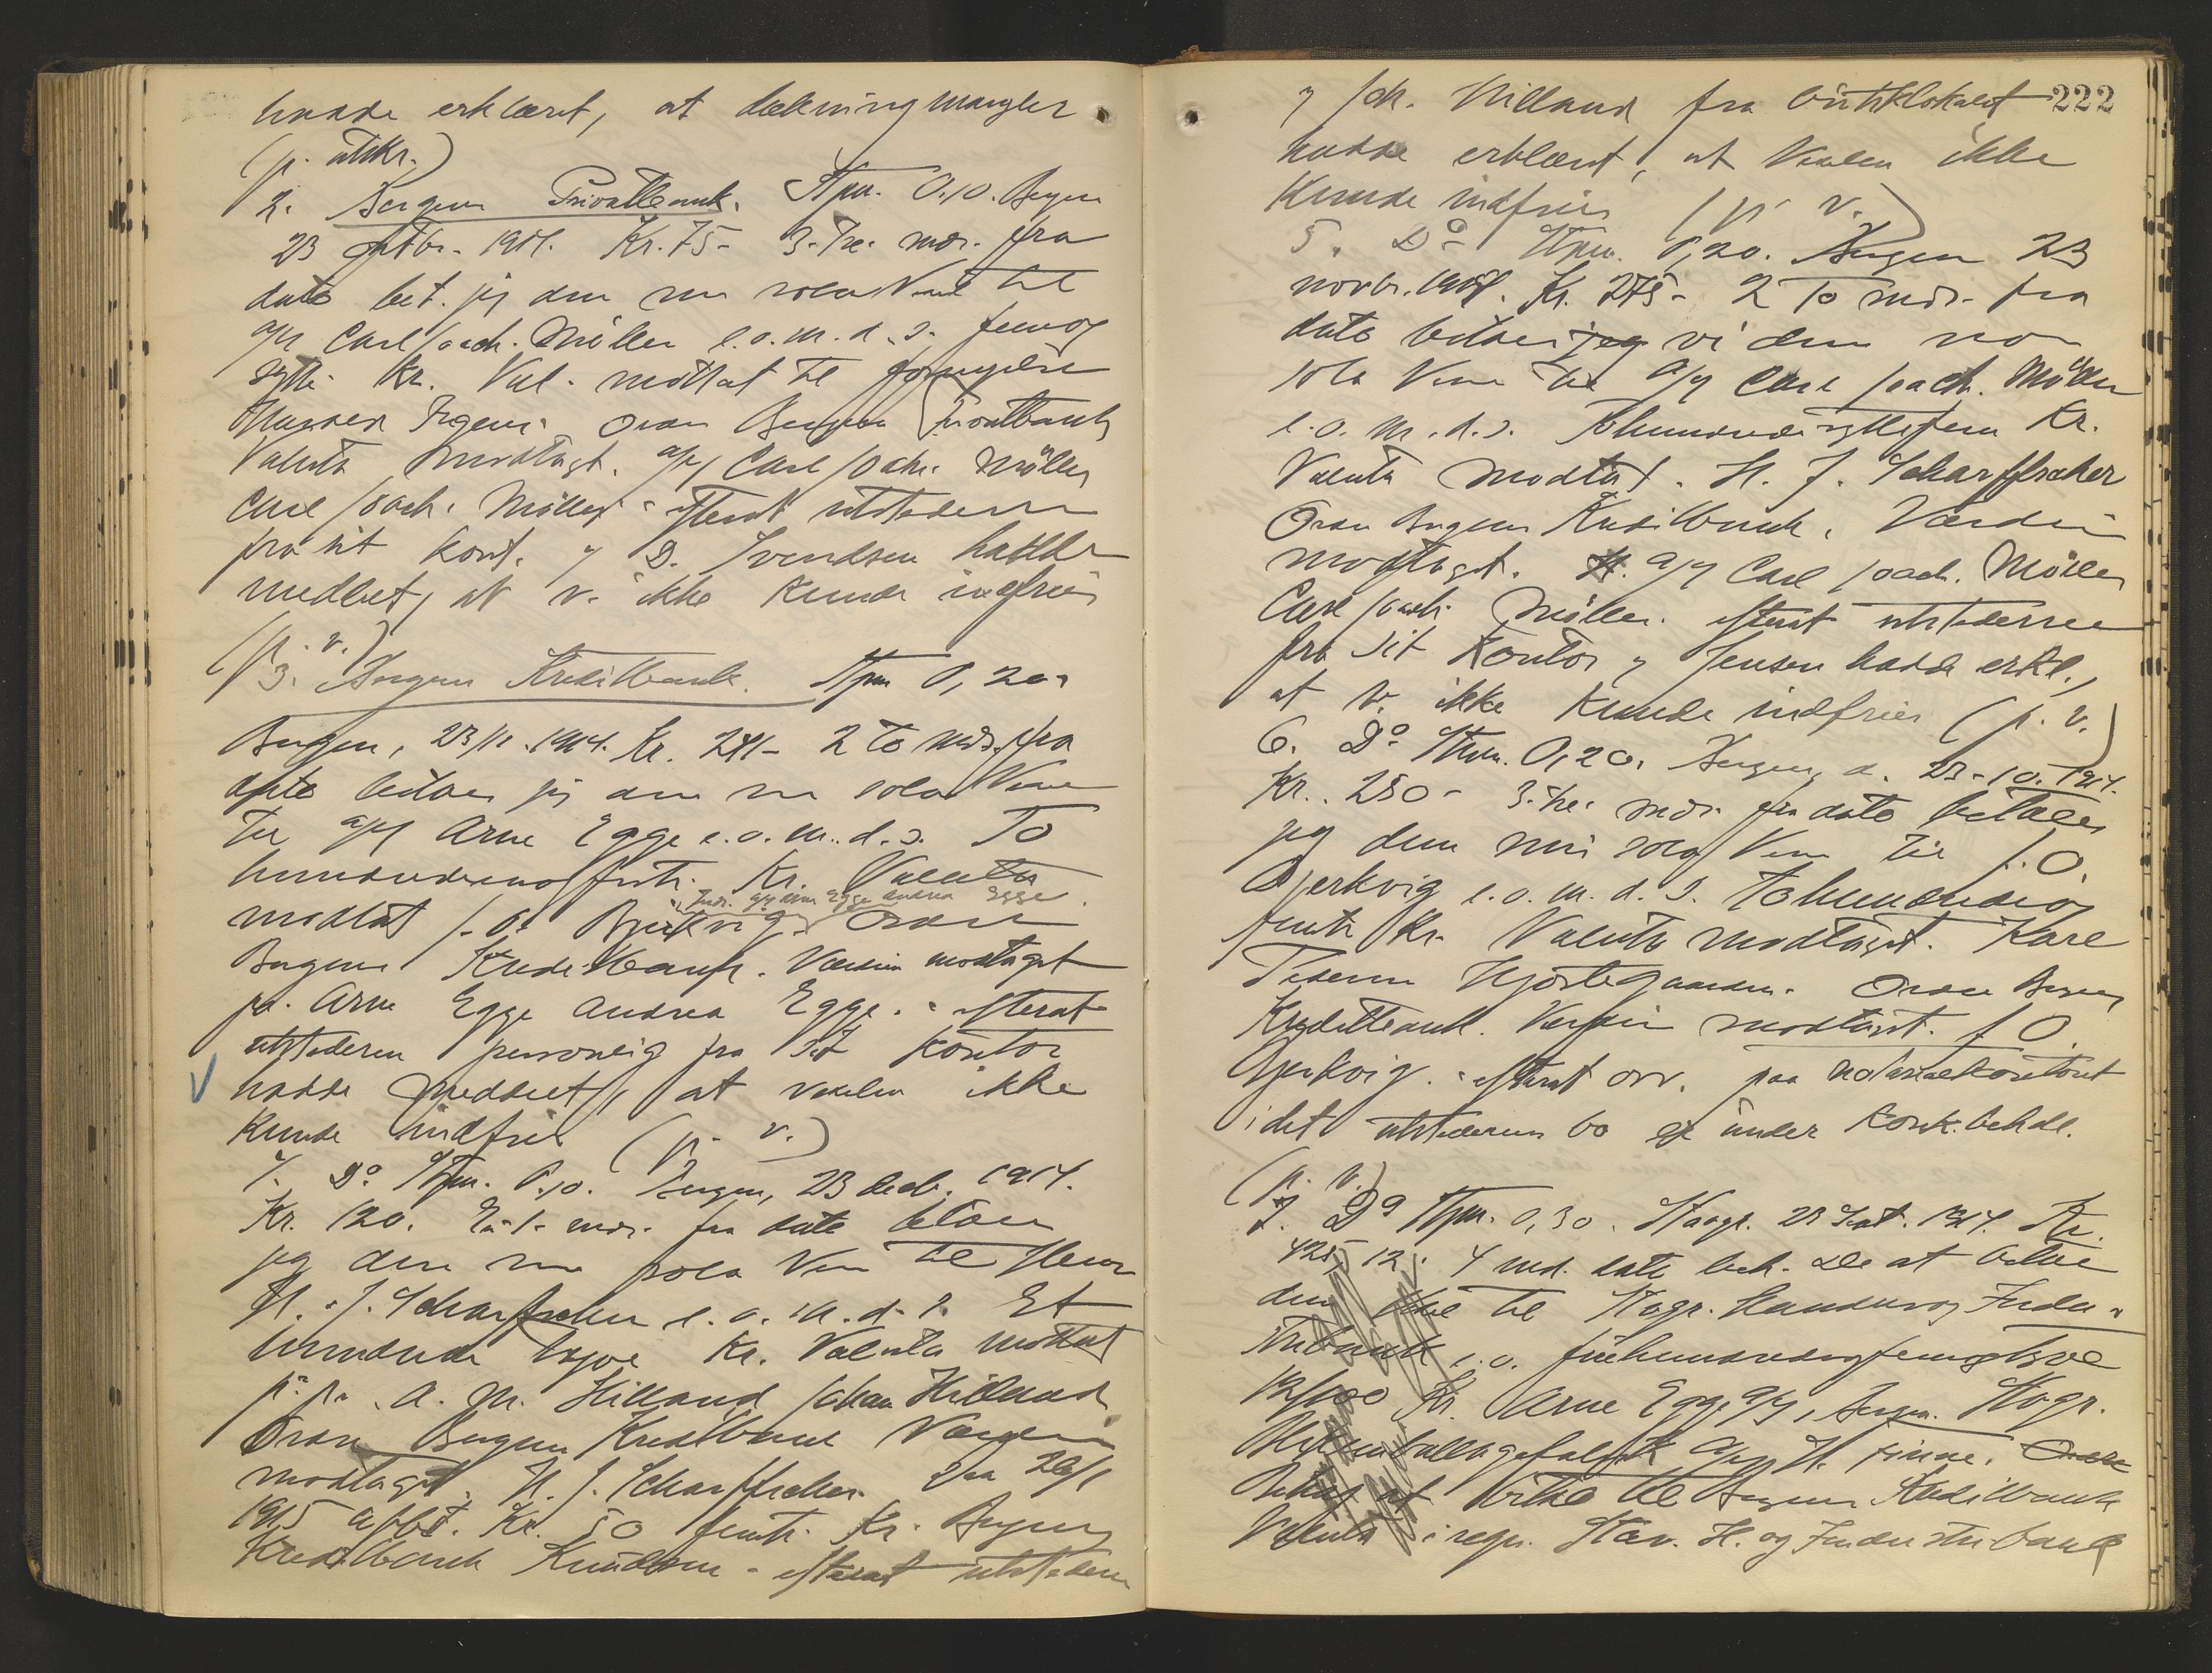 hadde erklæret, at dækning mangler
(p. utskr.)
2. Bergens Privatbank. Stpm. 0.10. Bergen
23 oktbr. 1914. Kr. 75- 3. tre mdr. fra
dato bet. jeg den sola til
a/s Carl Joach. Möller e.o.m.d.s. femog
sytti Kr. Val. mottat til fornyelse
Irgens. Ordre Bergens Privatbank
Valuta modtagt. a/s Carl Joach. Möller
Carl Joach. Möller - efterat utstederen
fra sit Kont. v/ D. Svendsen hadde
meddelt, at v. ikke kunde indfries
(p. v.)
3. Bergens Kreditbank. Stpm 0,20.
Bergen, 23/11.1914. Kr. 241- 2 to mdr. fra
dato betaler jeg denne sola
til a/s Arne Egge e.o.m.d.s. To
hundrede Kr. Valuta
Indr. a/s Arne Egge Andrea Egge.
modtat J. O. Bjerkvig. Ordre
Bergens Kreditbank. Værdien modtaget
pr. Arne Egge Andrea Egge. - efterat
utstederen personlig fra sit Kontor
hadde meddelt, at vekselen ikke
kunde indfries (p. v.)
4. Do Stpm. 0.10. Bergen, 23 decb. 1914.
Kr. 120. En-1- mdr. fra dato betaler
jeg denne sola til Herr
H. J. Scharffscher e.o.m.d.s. Et
hundrede tyve Kr. Valuta mottat
p.p. A. M. Hilland Johan Hilland
Ordre Bergens Kreditbank Værdien
modtaget. H. J. Scharffscher. Paa 26/1
1915 afbet. Kr. 50 femti Kr. Bergens
Kreditbank - efterat utstederen
v/ Joh. Hilland fra butiklokalet 222
hadde erklæret, at Vexlen ikke
kunde indfries (p. v.)
5. Do Stpm. 0,20. Bergen 23
novbr. 1914. Kr. 275- 2 to mdr. fra
dato betaler jeg vi denne vor
sola til a/s Carl Joach. Möller
e.o.m.d.s. Tohundredesyttifem Kr.
Valuta modtat. H. J. Scharffscher
Ordre Bergens Kreditbank. Værdien
modtaget. H. a/s Carl Joach. Möller
Carl Joach. Möller. efterat utstederen
fra sit Kontor v/ Jensen hadde erkl.,
at v. ikke kunde indfries (p. v.)
6. Do Stpm. 0,20. Bergen, d. 23-10-1914.
Kr. 250- 3. tre mdr. fra dato betaler
jeg denne min sola til J. O.
Bjerkvig e.o.m.d.s. Tohundredeog
femti Kr. Valuta modtaget. Kare
Hjortegaarden. Ordre Bergens
Kreditbank. Værdien modtaget. J. O.
Bjerkvig. - efterat paa notarialkontoret
idet utstederens bo er under konk.behdl.
(p. v.)
7. Do Stpm. 0,30. Havgr. 23 Sept. 1914. Kr.
425,12. 4 md. dato beh. De at betale
denne til Havgr. Handels og Indu-
stribank e.o. firehundredeogfemogtyve
12/100 Kr. Arne Egge a/s, Bergen. Havgr.
a/s H. Finne. Ordre
til Bergens Kreditbank
Valuta i regn. Hav. H. og Industribank